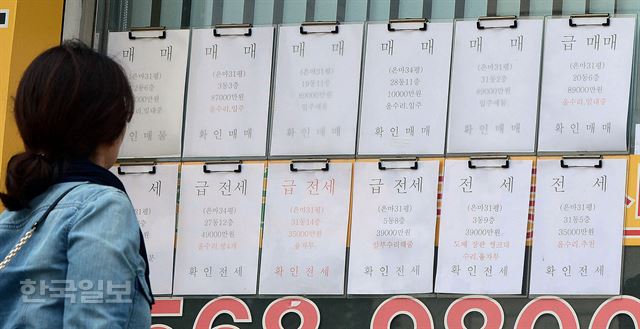 매 매
(은마31평)
87000만원
올수리,입주
확인매물
매 매
(은마31평)
3동3층
82000만원
올수리,입주
확인매매
매 매
(은마31평)
19동11층
89000만원
입주매물
확인매매
매 매
(은마34평)
28동11층
10000만원
올수리,입주
확인매매
매 매
(은마31평)
31동2층
89000만원
입주매물
확인매매
급매매
(은마31평)
20동6층
89000만원
올수리,임대중
확인매매
전세
31평)
49000만원
확인전세
급전세
(은마34평)
27동12층
49000만원
올수리,방4개
확인전세
급전세
(은마31평)
31동14층
35000만원
융자무
확인전세
급전세
(은마34평)
5동8층
39000만원
일부수리해줌
확인전세
전 세
(은마31평)
3동9층
39000만원
도배 장판 씽크대
수리,융자무
확인전세
전 세
(은마31평)
31동5층
35000만원
올수리.추천
확인전세
568 0800
한국일보